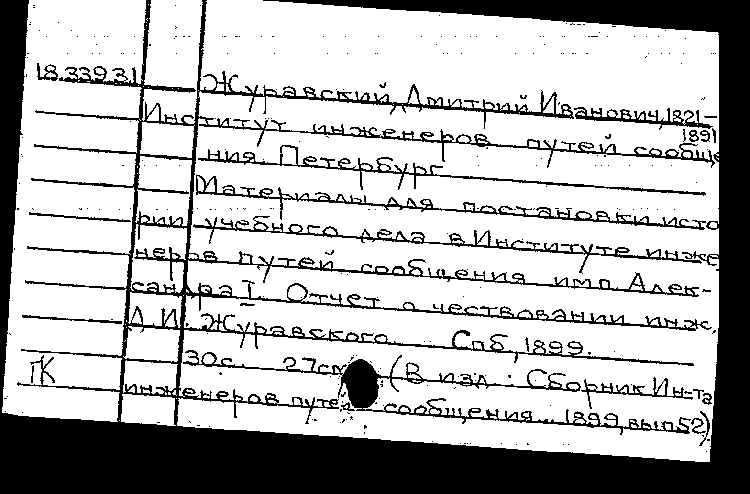 18.339.31 Журавский, Дмитрий Иванович, 1821-
1891
Институт инженеров путей сообще
ния. Петербург
Материалы для постановки исто
рии учебного дела в Институте инже
неров путей сообщения имп. Алек-
сандра I. Отчет о чествовании инж.
Д.И. Журавского. Спб, 1899.
30с. 27см (В изд.: Сборник Ин-та
ПК инженеров путей сообщения... 1899, вып 52)